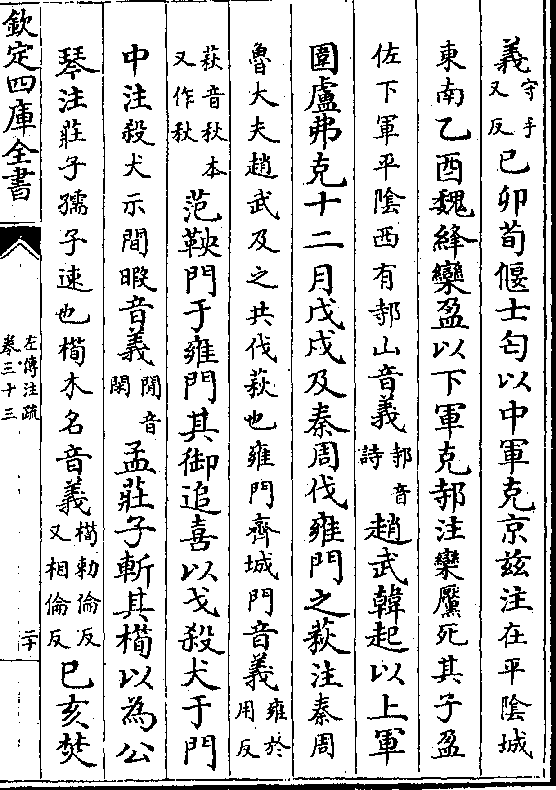 義守手又反己卯荀偃士匄以中軍克京茲注在平隂城
東南乙酉魏絳欒盈以下軍克邿注欒黶死其子盈
佐下軍平隂西有邿山音義邿音詩趙武韓起以上軍
圍盧弗克十二月戊戌及秦周伐雍門之萩注秦周
魯大夫趙武及之共伐萩也雍門齊城門音義雍於用反
萩音秋本又作秋范鞅門于雍門其御追喜以戈殺犬于門
中注殺犬示閒暇音義閒音閑孟莊子斬其橁以為公
琴注莊子孺子速也橁木名音義橁勅倫反又相倫反己亥焚
欽定四庫全書
左傳注疏
卷三十三
二十